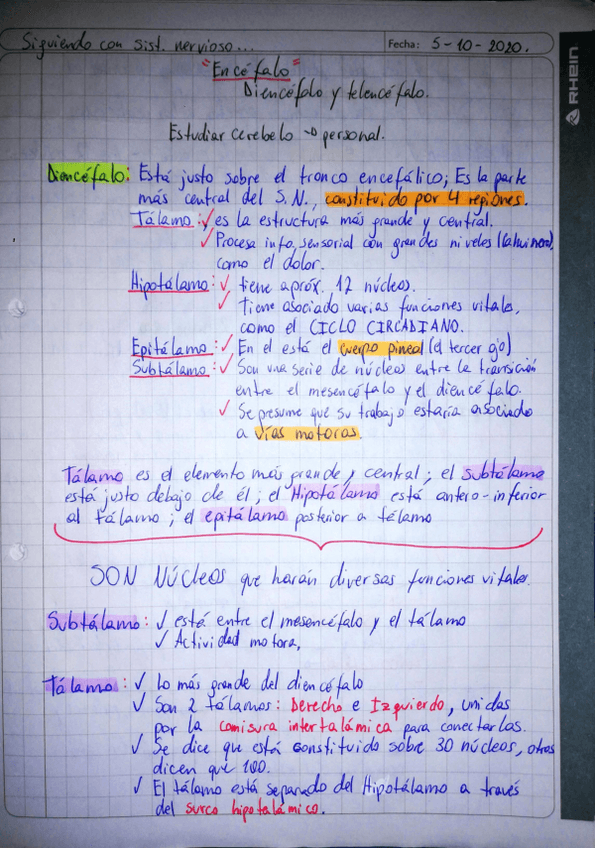 Siguiendo con sist. nervioso...
Fecha: 5-10-2020.
RHEIN
"Encéfalo"
Diencéfalo y telencéfalo.
Estudiar cerebelo → personal.
Diencéfalo: Está justo sobre el tronco encefálico; Es la parte
más central del S.N., constituido por 4 regiones.
Tálamo: ✓ es la estructura más grande y central.
✓ Procesa info, sensorial con grandes niveles
como el dolor.
Hipotálamo: ✓ tiene apróx. 12 núcleos.
✓ Tiene asociado varias funciones vitales,
como el CICLO CIRCADIANO.
Epitálamo: ✓ En el está el cuerpo pineal (el tercer ojo)
Subtálamo: ✓ Son una serie de núcleos entre la transición
entre el mesencéfalo y el diencéfalo.
✓ Se presume que su trabajo estaría asociado
a vías motoras.
Tálamo es el elemento más grande y central; el subtálamo
está justo debajo de él; el Hipotálamo está antero-inferior
al tálamo; el epitálamo posterior a télamo
SON NÚCLEOS que harán diversas funciones vitales.
Subtálamo: ✓ está entre el mesencéfalo y el tálamo
✓ Actividad motora,
Tálamo: ✓ Lo más grande del diencéfalo
✓ Son 2 tálamos: Derecho e Izquierdo, unidas
por la comisura intertalámica para conectarlas.
✓ Se dice que está constituido sobre 30 núcleos, otros
dicen que 100.
✓ El tálamo está separado del Hipotálamo a través
del surco hipotalámico.